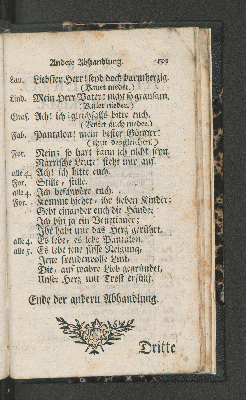 Andere Abhandlung.
Lau. Liebster Herr! seyd doch barmherzig.
(Kniet nieder.)
Lind. Mein Herr Vater! nicht so grausam.
(Kniet nieder.)
Ach! ich gleichfalls bitte euch.
(Kniet auch nieder.)
Fab. Pantalon! mein bester Gönner!
(thut desgleichen.)
For. Nein; so hart kann ich nicht seyn.
Närrische Leute! stehet nur auf.
alle 4. Ach! ich bitte euch.
For. Stille, stille.
alle 4. Ich beschwöre euch.
For. Kommt hieher, ihr lieben Kinder;
Gebt einander euch die Hände:
Ich bin ja ein Venetianer;
Ihr habt mir das Herz gerührt.
alle 4. Es lebe, es lebe Pantalon.
alle 5. Es lebe jene süsse Neigung,
Jene freudenvolle Lust,
Die, auf wahre Lieb gegründet,
Unser Herz mit Trost erfüllt.
Ende der andern Abhandlung.
Dritte